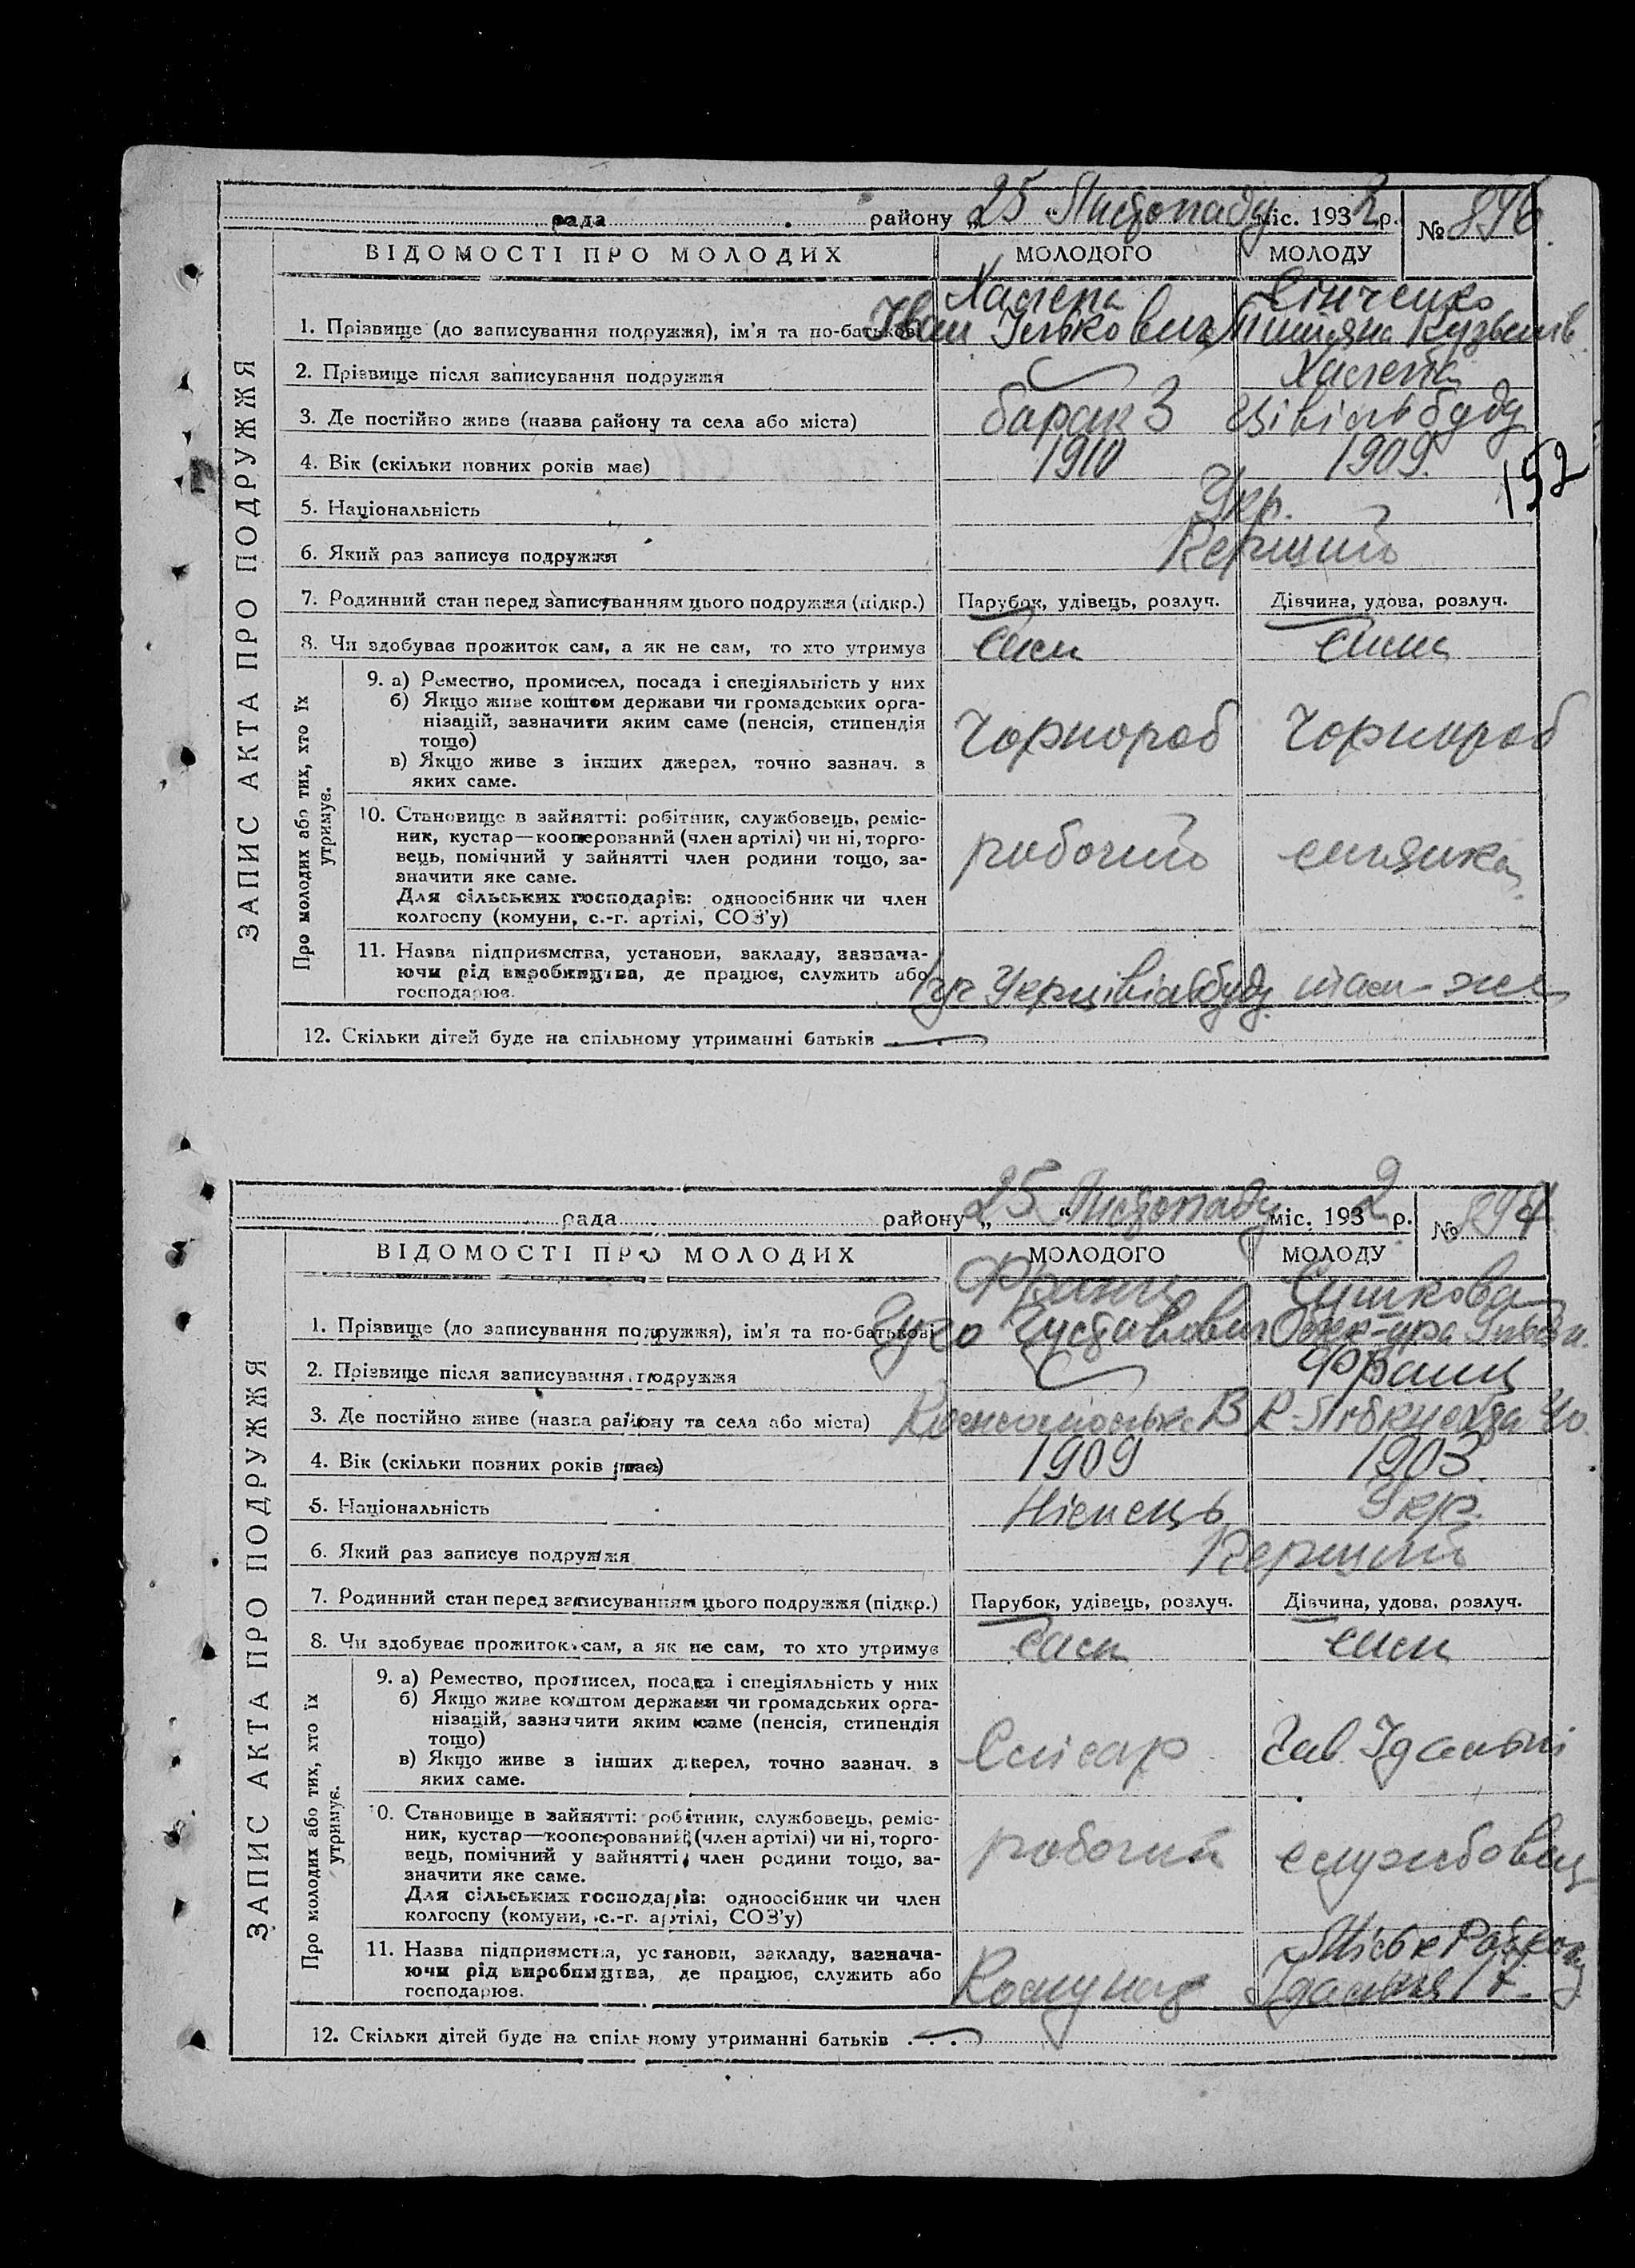 рада района „25 “ Листопаду міс. 1932 р. № 896.
ВІДОМОСТІ ПРО МОЛОДИХ МОЛОДОГО МОЛОДУ
ЗАПИС АКТА ПРО ПОДРУЖЖЯ
Сінченко
1. Прізвище (до записування подружжя), ім’я та по-батькові Іван
2. Прізвище після записування подружжя
3. Де постійно живе (назва району та села або міста) барак 3 Цівільбуду
4. Вік (скільки повних років має) 1910 1909.
152
5. Національність Укр.
6. Який раз записує подружжя Перший
7. Родинний стан перед записуванням цього подружжя (підкр.) Парубок, удівець, розлуч. Дівчина, удова, розлуч.
8. Чи здобуває прожиток сам, а як не сам, то хто утримує сам сама
Про молодих або тих, хто їх утримує.
9. а) Ремество, промисел, посада і спеціяльність у них
б) Якщо живе коштом держави чи громадських орга-
нізацій, зазначити яким саме (пенсія, стипендія
тощо) Чорнороб Чорнороб
в) Якщо живе з інших джерел, точно зазнач. з
яких саме.
10. Становище в зайнятті: робітник, службовець, реміс-
ник, кустар—кооперований (член артілі) чи ні, торго-
вець, помічний у зайнятті член родини тощо, за- робочий селянка
значити яке саме.
Для сільських господарів: одноосібник чи член
колгоспу (комуни, с.-г. артілі, СОЗ’у)
11. Назва підприємства, установи, закладу, зазнача-
ючи рід виробництва, де працює, служить або Укрцівільбуд. там-же
господарює.
12. Скільки дітей буде на спільному утриманні батьків
рада району „25 “ Листопаду міс. 1932 р. №
ВІДОМОСТІ ПРО МОЛОДИХ МОЛОДОГО МОЛОДУ
ЗАПИС АКТА ПРО ПОДРУЖЖЯ
Франц Сушкова
1. Прізвище (до записування подружжя), ім’я та по-батькові Гуго Густавович
2. Прізвище після записування подружжя Франц
3. Де постійно живе (назва району та села або міста) К-Лібкнехта
4. Вік (скільки повних років має) 1909 1903.
5. Національність Німець Укр.
6. Який раз записує подружжя Перший
7. Родинний стан перед записуванням цього подружжя (підкр.) Парубок, удівець, розлуч. Дівчина, удова, розлуч.
8. Чи здобуває прожиток сам, а як не сам, то хто утримує сам сама
Про молодих або тих, хто їх утримує.
9. а) Ремество, промисел, посада і спеціяльність у них
б) Якщо живе коштом держави чи громадських орга-
нізацій, зазначити яким саме (пенсія, стипендія
тощо) Слісар Зав. Їдальні
в) Якщо живе з інших джерел, точно зазнач. з
яких саме.
10. Становище в зайнятті: робітник, службовець, реміс-
ник, кустар—кооперований (член артілі) чи ні, торго-
вець, помічний у зайнятті член родини тощо, за- робочий службовец
значити яке саме.
Для сільських господарів: одноосібник чи член
колгоспу (комуни, с.-г. артілі, СОЗ’у)
11. Назва підприємства, установи, закладу, зазнача-
ючи рід виробництва, де працює, служить або Їдальня
господарює.
12. Скільки дітей буде на спільному утриманні батьків